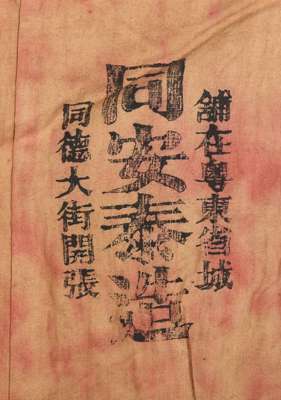 舖在粵東省城
同安泰造
同德大街開張